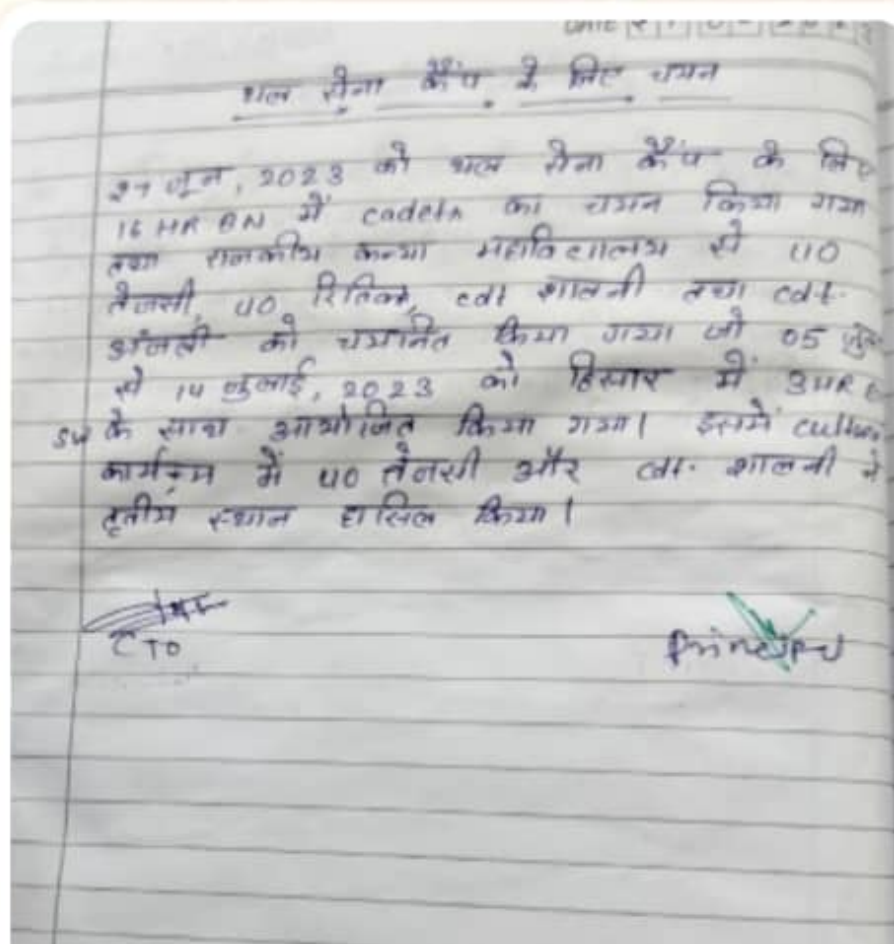 DATE
थल सेना कैंप के लिए चयन
27 जून, 2023 को थल सेना कैंप के लिए
16 HR BN में cadets का चयन किया गया
तथा राजकीय कन्या महाविद्यालय से UO
तेजसी, UO रितिक, cdt शालनी तथा cdt.
अंजली को चयनित किया गया जो 05
से 14 जुलाई, 2023 को हिसार में 3HR
के साथ आयोजित किया गया। इसमें
कार्यक्रम में UO तेजसी और cdt. शालनी ने
तृतीय स्थान हासिल किया।
CTO
Principal